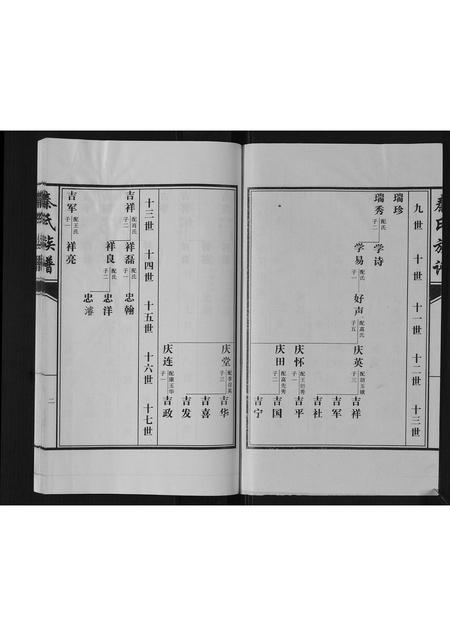 秦氏族谱
九世 十世 十一世 十二世 十三世
瑞珍
瑞秀 配氏 子二
学诗
学易 配氏 子一
好声 配高氏 子五
庆英 子三
吉祥
吉军
吉社
庆怀 子一
吉平
庆田 配高先秀 子二
吉国
吉宁
庆堂 子三
吉华
吉喜
吉发
庆连 配康玉华 子一
吉政
十三世 十四世 十五世 十六世 十七世
吉祥 配肖氏 子二
祥磊 配氏 子一
忠翰
祥良 配氏 子二
忠洋
忠
吉军 配王氏 子一
祥亮
秦氏族谱
二